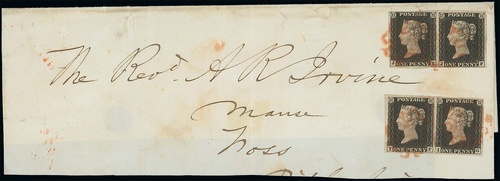 POSTAGE POSTAGE
ONE PENNY ONE PENNY
The Revd. A R Irvine
Manse
Foss
POSTAGE POSTAGE
ONE PENNY ONE PENNY